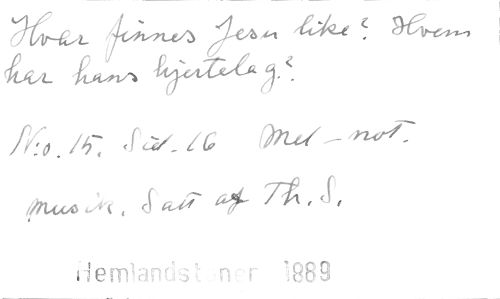 Hvar finnes Jesu like? Hvem
har hans hjertelag?
N:o. 15. Sid. 16 Mel-not.
musik. Satt af Th. S.
Hemlandstoner 1889